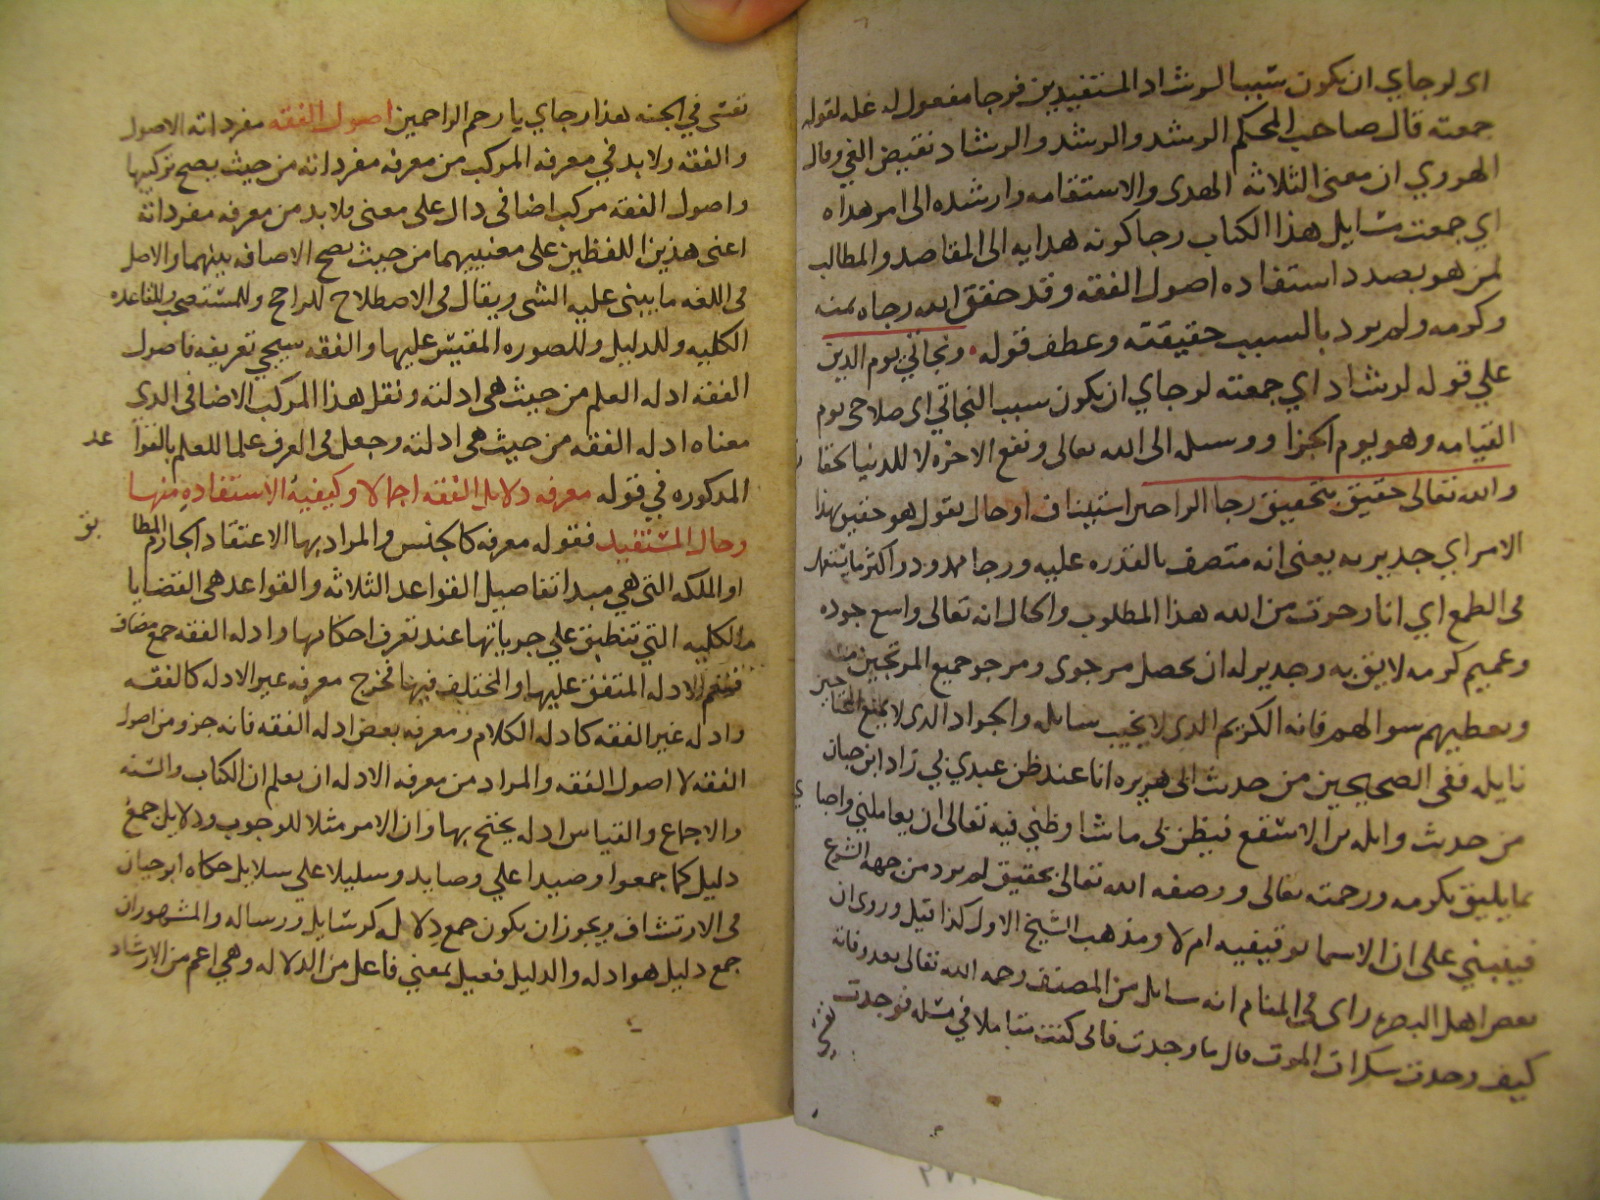 اى لرجاي ان يكون سببا لرشاد المستفيدين فرجا مفعول له علة لقوله
جمعته قال صاحب المحكم الرشد والرشد والرشاد نقيض الغي وقال
الهروي ان معنى الثلاثة الهدى والاستقامه وارشده الى امر هداه
اي جمعت مسايل هذا الكتاب رجا كونه هدايه الى المقاصد والمطالب
لمن هو بصدد استفاده اصول الفقه وقد حقق الله رجاه بمنه
وكرمه ولم يرد بالسبب حقيقته وعطف قوله ونجاتي يوم الدين
علي قوله لرشاد اي جمعته لرجاي ان يكون سبب النجاتي اى صلاحى يوم
القيامه وهو يوم الجزا ووسيله الى الله تعالى ونفع الاخرة لا للدنيا
والله تعالى حقيق بتحقيق رجا الراجين استيناف او حال يقول هو حقيق بهذا
الامر اي جدير به يعنى انه متصف بالقدره عليه ورجا ممدود واكثر ما يستعمل
فى الطمع اي انا رجوت من الله هذا المطلوب والحال انه تعالى واسع جوده
وعميم كرمه لايق به وجدير له ان يحصل مرجوى ومرجو جميع المرتجين منه
ويعطيهم سوالهم فانه الكريم الذى لا يخيب سايله والجواد الذى لا يمنع
نايله ففى الصحيحين من حديث ابى هريره انا عند ظن عبدي بي زاد ابن حبان
من حديث واثله بن الاسقع فيظن بى ما شا وظني فيه تعالى ان يعاملني واحبا
بما يليق بكرمه ورحمته تعالى ووصفه الله تعالى بحقيق لم يرد من جهه الشرع
فينبني على ان الاسما توقيفيه ام لا ومذهب الشيخ الاول كذا قيل وروى ان
بعض اهل البصرة راى فى المنام انه سايل من المصنف رحمه الله تعالى بعد وفاته
كيف وجدت سكرات الموت قال ما وجدت فانى كنت متاملا في مسله فوجدت
نفسي
نفسى في الجنه هذا رجاي يا رحم الراحمين اصول الفقه مفرداته الاصول
والفقه ولا بد في معرفه المركب من معرفه مفرداته من حيث يصح تركيبها
واصول الفقه مركب اضافى دال على معنى فلا بد من معرفه مفرداته
اعنى هذين اللفظين على معنييهما من حيث يصح الاضافه بينهما والاصل
فى اللغه ما يبنى عليه الشى ويقال فى الاصطلاح للراجح وللمستصحب وللقاعده
الكليه وللدليل وللصوره المقيس عليها والفقه سيجي تعريفه فاصول
الفقه ادله العلم من حيث هى ادلته ونقل هذا المركب الاضافى الدى
معناه ادله الفقه من حيث هى ادلته وجعل فى العرف علما للعلم بالقوا
عد
المذكوره في قوله معرفه دلايل الفقه اجمالا وكيفية الاستفاده منها
وحال المستفيد فقوله معرفه كالجنس والمراد بها الاعتقاد الجازم المطا
بق
او الملكه التى هي مبدا تفاصيل القواعد الثلاثه والقواعد هى القضايا
الكليه التي تنطبق علي جزياتها عند تعرف احكامها وادله الفقه جمع مضاف
الادله المتفق عليها والمختلف فيها فخرج معرفه غير الادله كالفقه
وادله غير الفقه كادله الكلام ومعرفه بعض ادله الفقه فانه جزو من اصول
الفقه لا اصول الفقه والمراد من معرفه الادله ان يعلم ان الكتاب والسنه
والاجماع والقياس ادله يحتج بها وان الامر مثلا للوجوب ودلايل جمع
دليل كما جمعوا وصيدا علي وصايد وسليلا علي سلايل حكاه ابو حيان
فى الارتشاف ويجوز ان يكون جمع دلاله كرسايل ورساله والمشهور ان
جمع دليل هو ادله والدليل فعيل بمعني فاعل من الدلاله وهي اعم من الارشاد